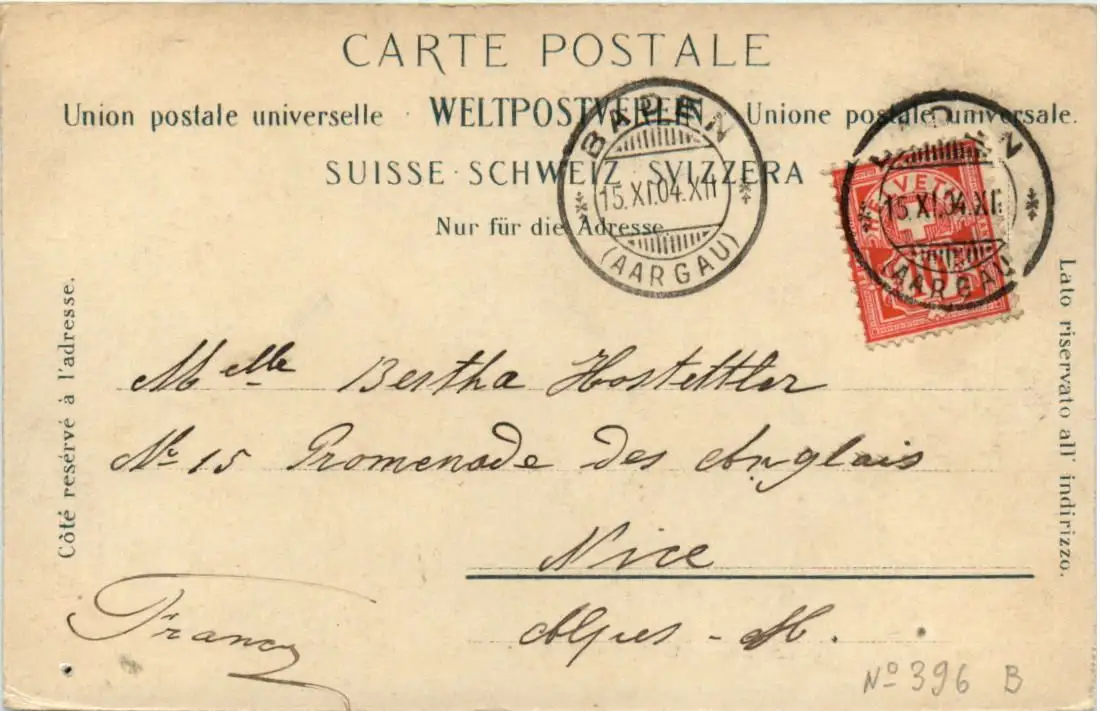 CARTE POSTALE
Union postale universelle · WELTPOSTVEREIN · Unione postale universale.
SUISSE · SCHWEIZ · SVIZZERA
Nur für die Adresse.
BADEN
15.XI.04.XII
(AARGAU)
BADEN
15.XI.04.XII
(AARGAU)
HELVETIA
10
Côté reservé à l'adresse.
Lato riservato all' indirizzo.
Melle Bertha Hostettler
No 15 Promenade des Anglais
Nice
Alpes - M.
France
No 396 B